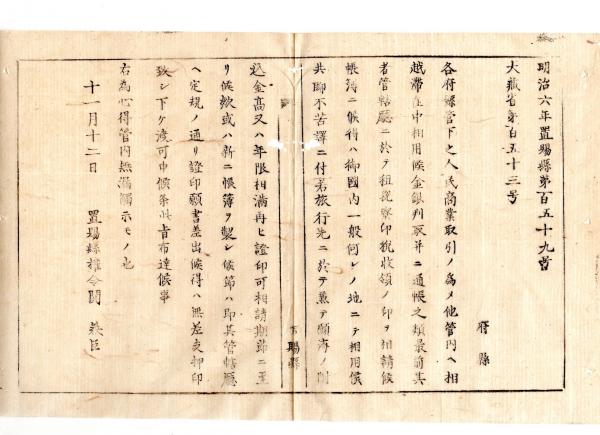 明治六年置賜縣第百五十九号
大藏省第百五十三号
府縣
各府縣管下之人民商業取引ノ為メ他管内ヘ相
越滞在中相用候金銀判取并ニ通帳之類最前其
者管轄廳ニ於テ租税寮印税收領ノ印ヲ相請候
帳簿ニ候得ハ御國内一般何レノ地ニテ相用候
共聊不苦譯ニ付若旅行先ニ於テ兼テ願濟ノ
込金高又ハ年限相満再ヒ證印可相請期節ニ至
リ候歟或ハ新ニ帳簿ヲ製シ候節ハ即其管轄廳
ヘ定規ノ通リ證印願書差出候得ハ無差支押印
致シ下ケ渡可申候条此旨布達候事
右為心得管内無漏觸示モノ也
十一月十二日 置賜縣權令關 義臣
賜縣